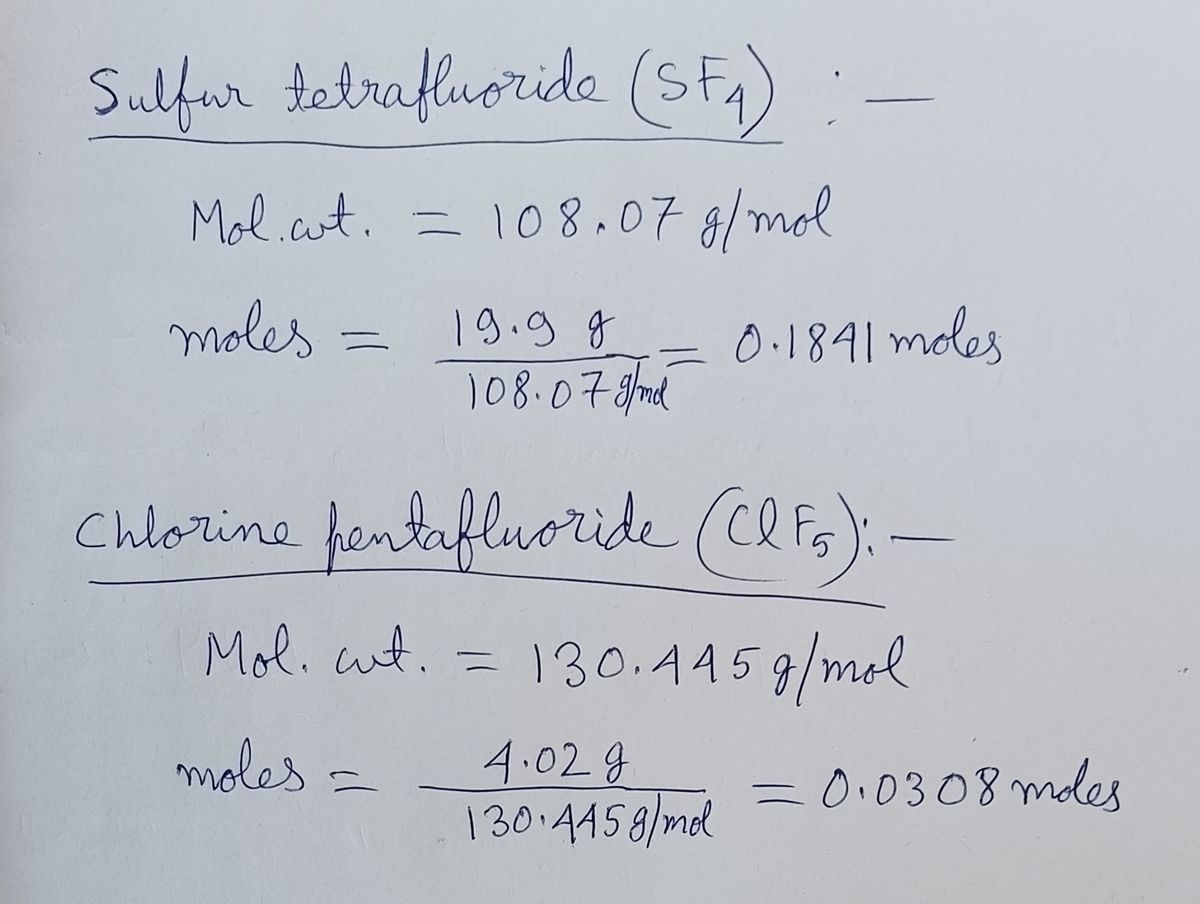 Sulfur tetrafluoride (SF₄) : —
Mol. wt. = 108.07 g/mol
moles = 19.9 g / 108.07 g/mol = 0.1841 moles
Chlorine pentafluoride (ClF₅): —
Mol. wt. = 130.445 g/mol
moles = 4.02 g / 130.445 g/mol = 0.0308 moles